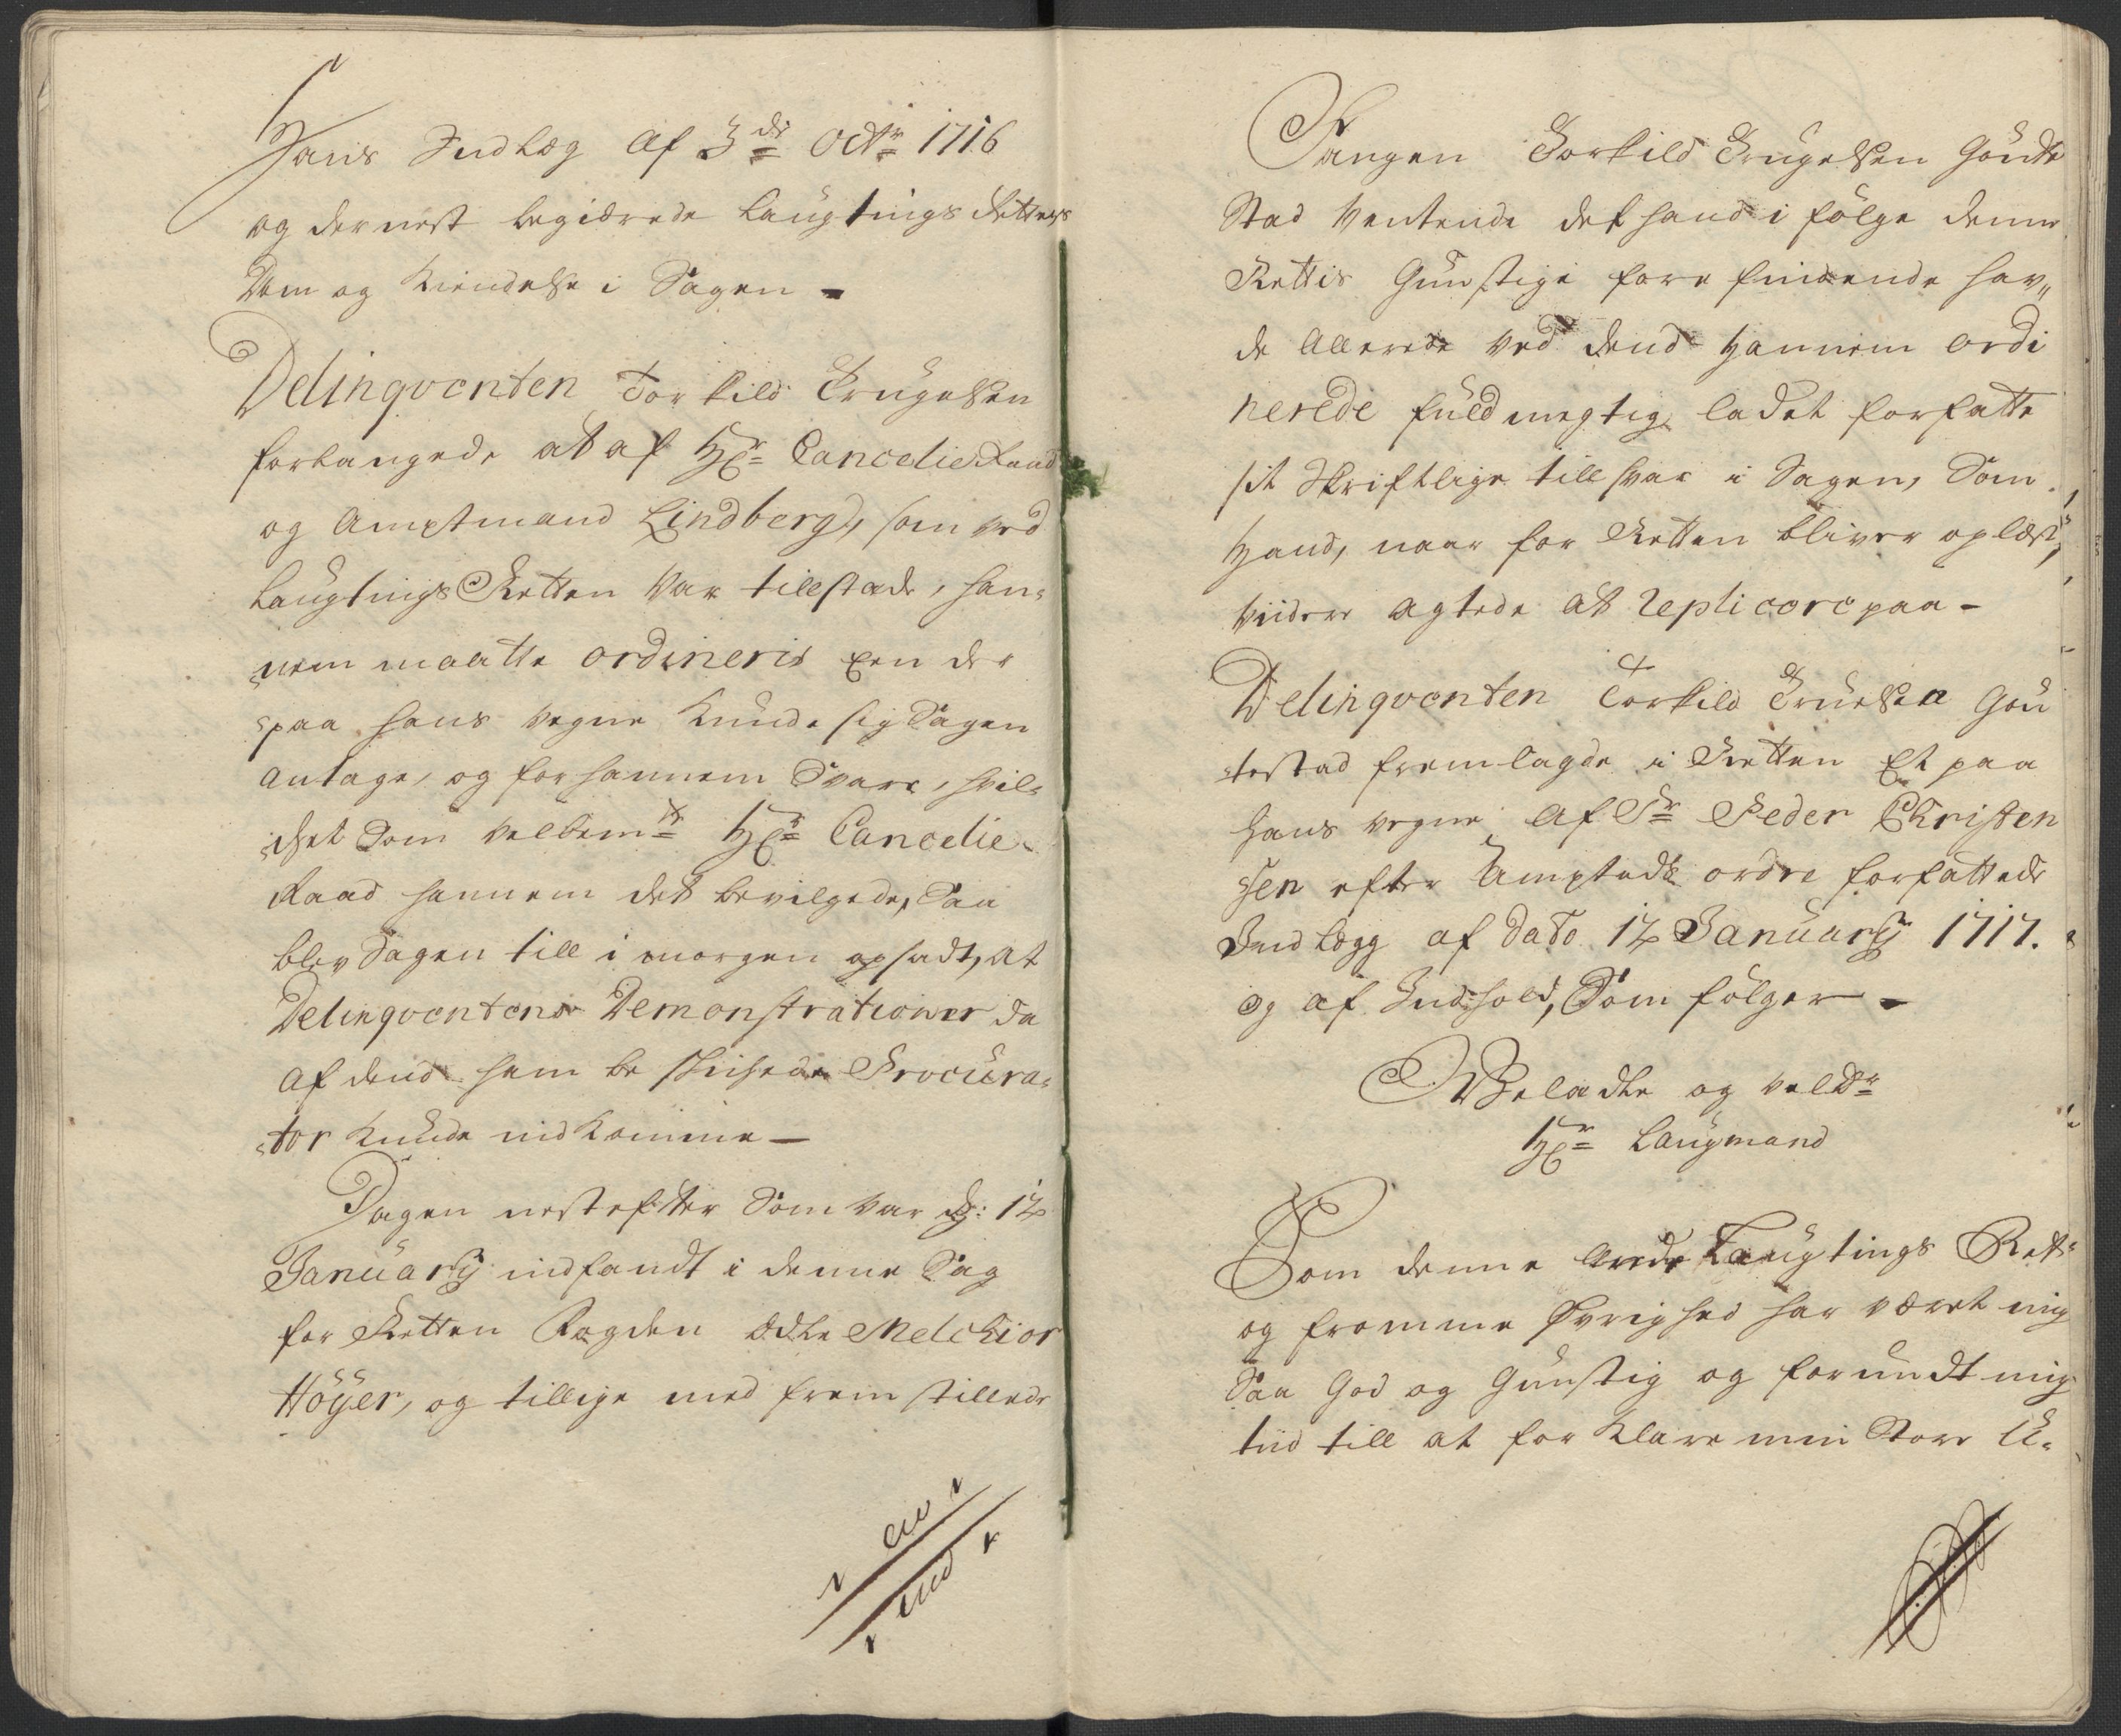 Hans Indlæg af 3de Octr 1716
og dernest begiærede Laugtings Rettens
Dom og Kiendelse i Sagen –
Delinqventen Torkild Trugelsen
forlangede at af Hr Cancelie Raad
og Amptmand Lindberg, som ved
Laugtings Retten var tillstæde, han-
nem maatte ordineris een der
paa hans vegne kunde sig Sagen
antage, og for hannem Svare, hvil-
chet som velbemte Hr Cancelie-
Raad hannem det bevilgede, Saa
blev Sagen till i morgen opsadt, at
Delinqventens Demonstrationer da
af dend ham be skichede Procura-
tor kunde indkomme –
Dagen nestefter som var d: 12
January indfandt i denne Sag
for Retten Fogden Ædle Melchior
Höyer, og tillige med frem stillede
Fangen Torkild Trugelsen Goute
Stad ventende det hand i følge denne
Rettis Gunstige fore findende hav„
de allerede ved dend hannem ordi
nerede fuldmegtig ladet forfatte
sit Skriftlige tillsvar i Sagen, Som
Hand, naar for Retten bliver oplæst,
viidere agtede at replicere paa –
Delinqventen Torkild Truelsen Gou
testad fremlagde i Retten Et paa
hans vegne af Sr Peder Christen
sen efter Amptets ordre forfattede
Indlægg af dato 12 January 1717.
og af Indhold, Som følger –
Velædle og velbr
Hr Laugmand
Som denne Laugtings Rett
og fromme Øvrighed har været mig
Saa God og Gunstig og forundt mig
tiid till at for klare min Store U-